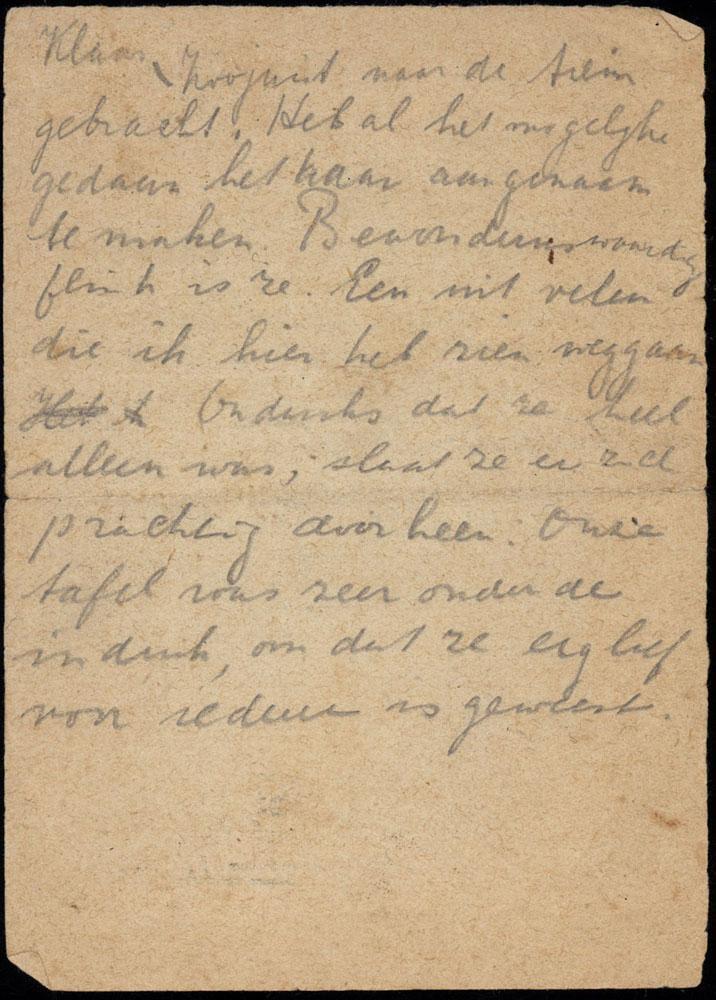 Klaar, Zoojuist naar de trein
gebracht. Heb al het mogelijke
gedaan het haar aangenaam
te maken. Bewonderenswaardig
flink is ze. Een uit velen
die ik hier heb zien weggaan
Ondanks dat ze heel
alleen was, slaat ze er zich
prachtig doorheen. Onze
tafel was zeer onder de
indruk, om dat ze erg lief
voor iedereen is geweest.